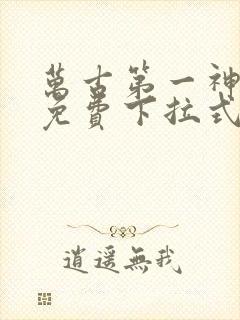 萬古第一神
免費下拉式
逍遙無我